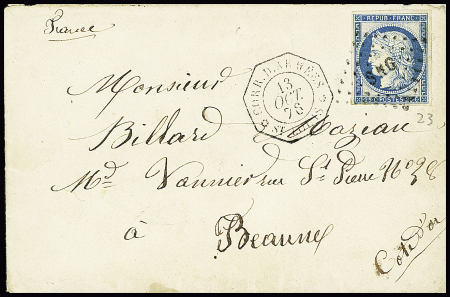 France
REPUB. FRANC.
CORR. D. ARMEES
13
OCT
76
POSTES
23
Monsieur
Billard Mazeau
Md Vannier rue St Pierre No 38
à
Beaune
Cote d'or